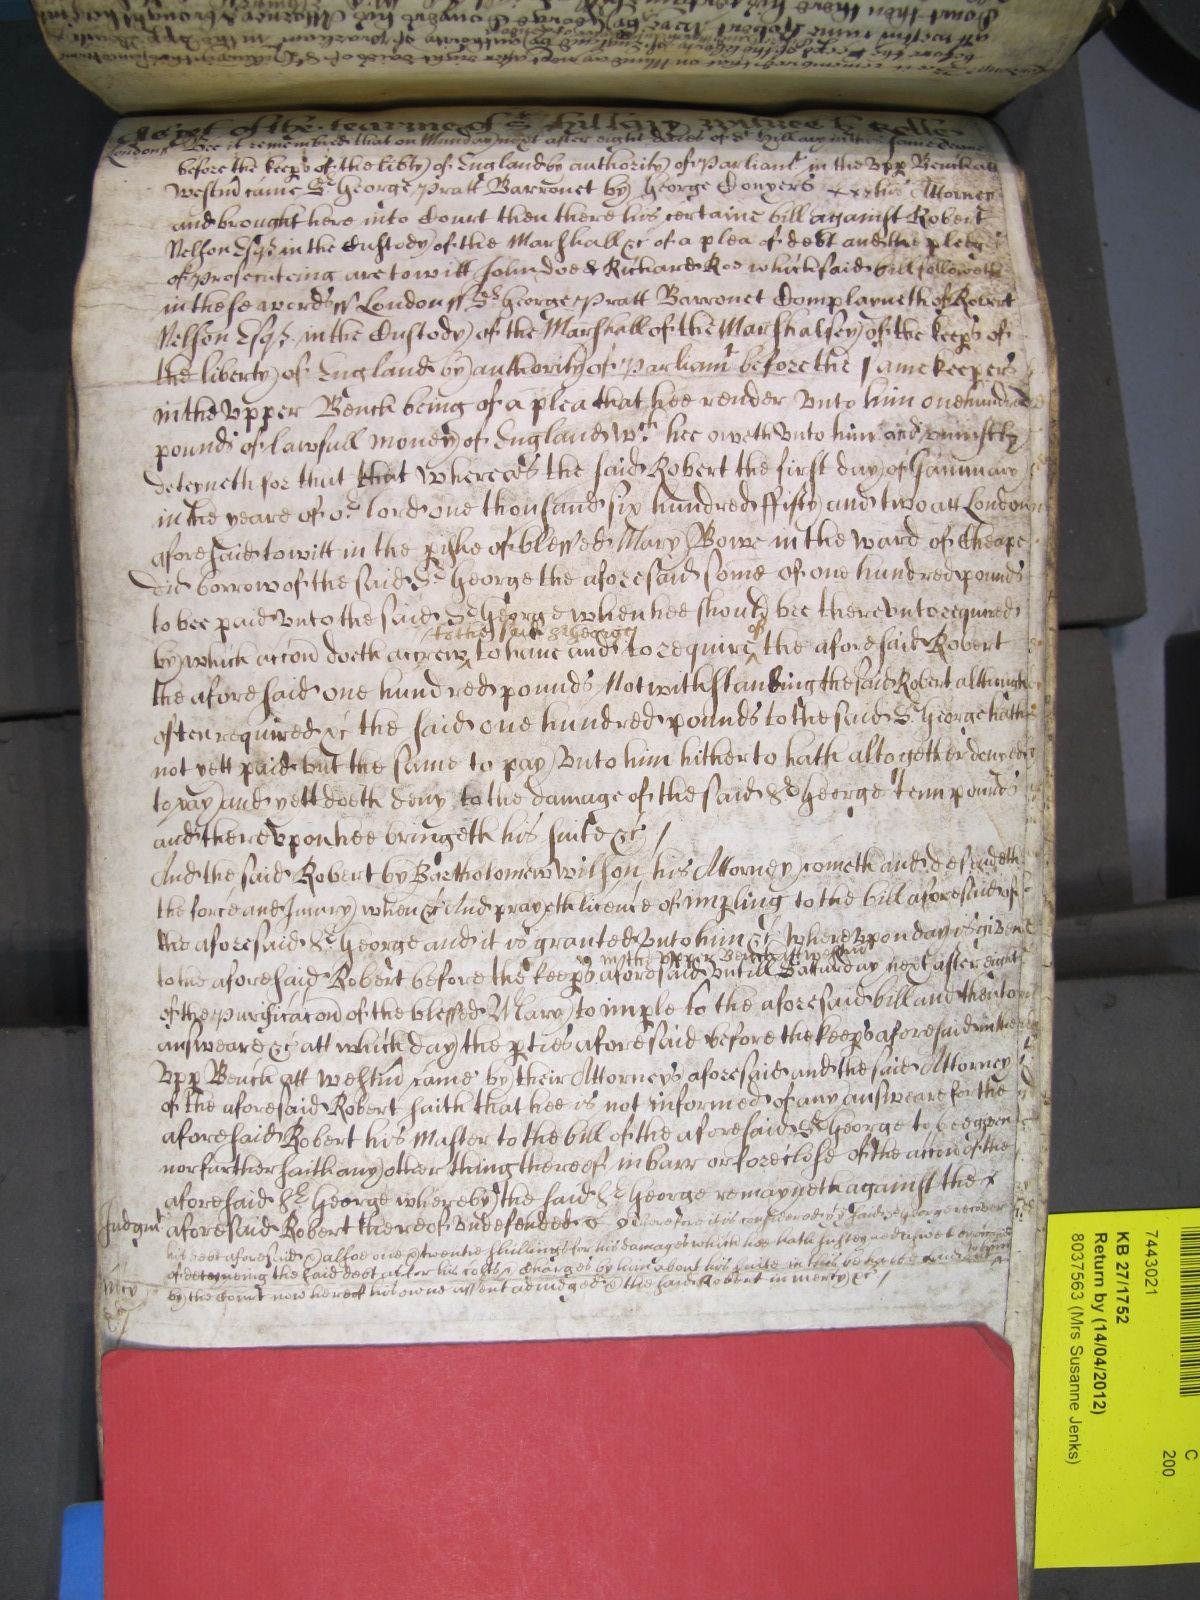 As yet of the tearme of St Hillary witnes H Rolle
London ss Bee it remembred that on Munday next after eight daies of St Hillary in this same Tearme
before the keeps of the libty of England by authority of Parliamt in the Upp Bench att
Westm came Sr George Pratt Barronet by George Conyers his Attorney
and brought here into Court then there his certaine bill against Robert
Nelson Esqr in the Custody of the Marshall &c of a plea of debt and the pledges
of prosecuteing are to witt John Doe & Richard Roe which said bill followeth
in these words ss London ss Sr George Pratt Barronet Complayneth of Robert
Nelson Esqr in the Custody of the Marshall of the Marshalsey of the keeps of
the liberty of England by authority of Parliamt before the same keepers
in the Upper Bench being of a plea that hee render unto him one hundred
pounds of lawfull money of England wch hee oweth unto him and uniustly
deteyneth for that that whereas the said Robert the first day of January
in the yeare of or lord one thousand six hundred ffifty and two att London
aforesaid to witt in the pishe of blessed Mary Bowe in the ward of Cheape
did borrow of the said Sr George the aforesaid some of one hundred pounds
to bee paid unto the said Sr George when hee should bee thereunto required
to the said Sr George of
by which accon doeth accrew to have and to require the aforesaid Robert
the aforesaid one hundred pounds Notwithstanding the said Robert although
often required &c the said one hundred pounds to the said Sr George hath
not yett paid but the same to pay unto him hitherto hath altogether denyed
to pay and yett doeth deny to the damage of the said Sr George Tenn pounds
and thereupon hee bringeth his suite &c /
And the said Robert by Bartholomew Wilson his Attorney cometh and defendeth
the force and Iniury when &c And prayeth licence of impling to the bill aforesaid of
the aforesaid Sr George and it is granted unto him &c whereupon day is given
in the Upper Bench att Westm
to the aforesaid Robert before the keeps aforesaid untill Saturday next after eight
of the Purificacon of the blessed Mary to imple to the aforesaid bill and then to
answeare &c att which day the pties aforesaid before the keeps aforesaid in the
Upp Bench att Westm came by their Attorneys aforesaid and the said Attorney
of the aforesaid Robert saith that hee is not informed of any answeare for the
aforesaid Robert his Master to the bill of the aforesaid Sr George to bee given
nor further saith any other thing thereof in barr or foreclose of the accon of the
aforesaid Sr George whereby the said Sr George remayneth against the
Judgmt aforesaid Robert thereof undefended &c Therefore it is considered yt ye said Sr George recover
his debt aforesaid & alsoe one & twentie shillings for his damages which hee hath susteyned
of deteyneing the said debt as for his costs & charges by him about his suite in this behalfe
Mcy by the Court now here of his owne assent adiudged & the said Robert in mercy &c /
7443021
KB 27/1752
Return by (14/04/2012)
8037563 (Mrs Susanne Jenks)
C
200